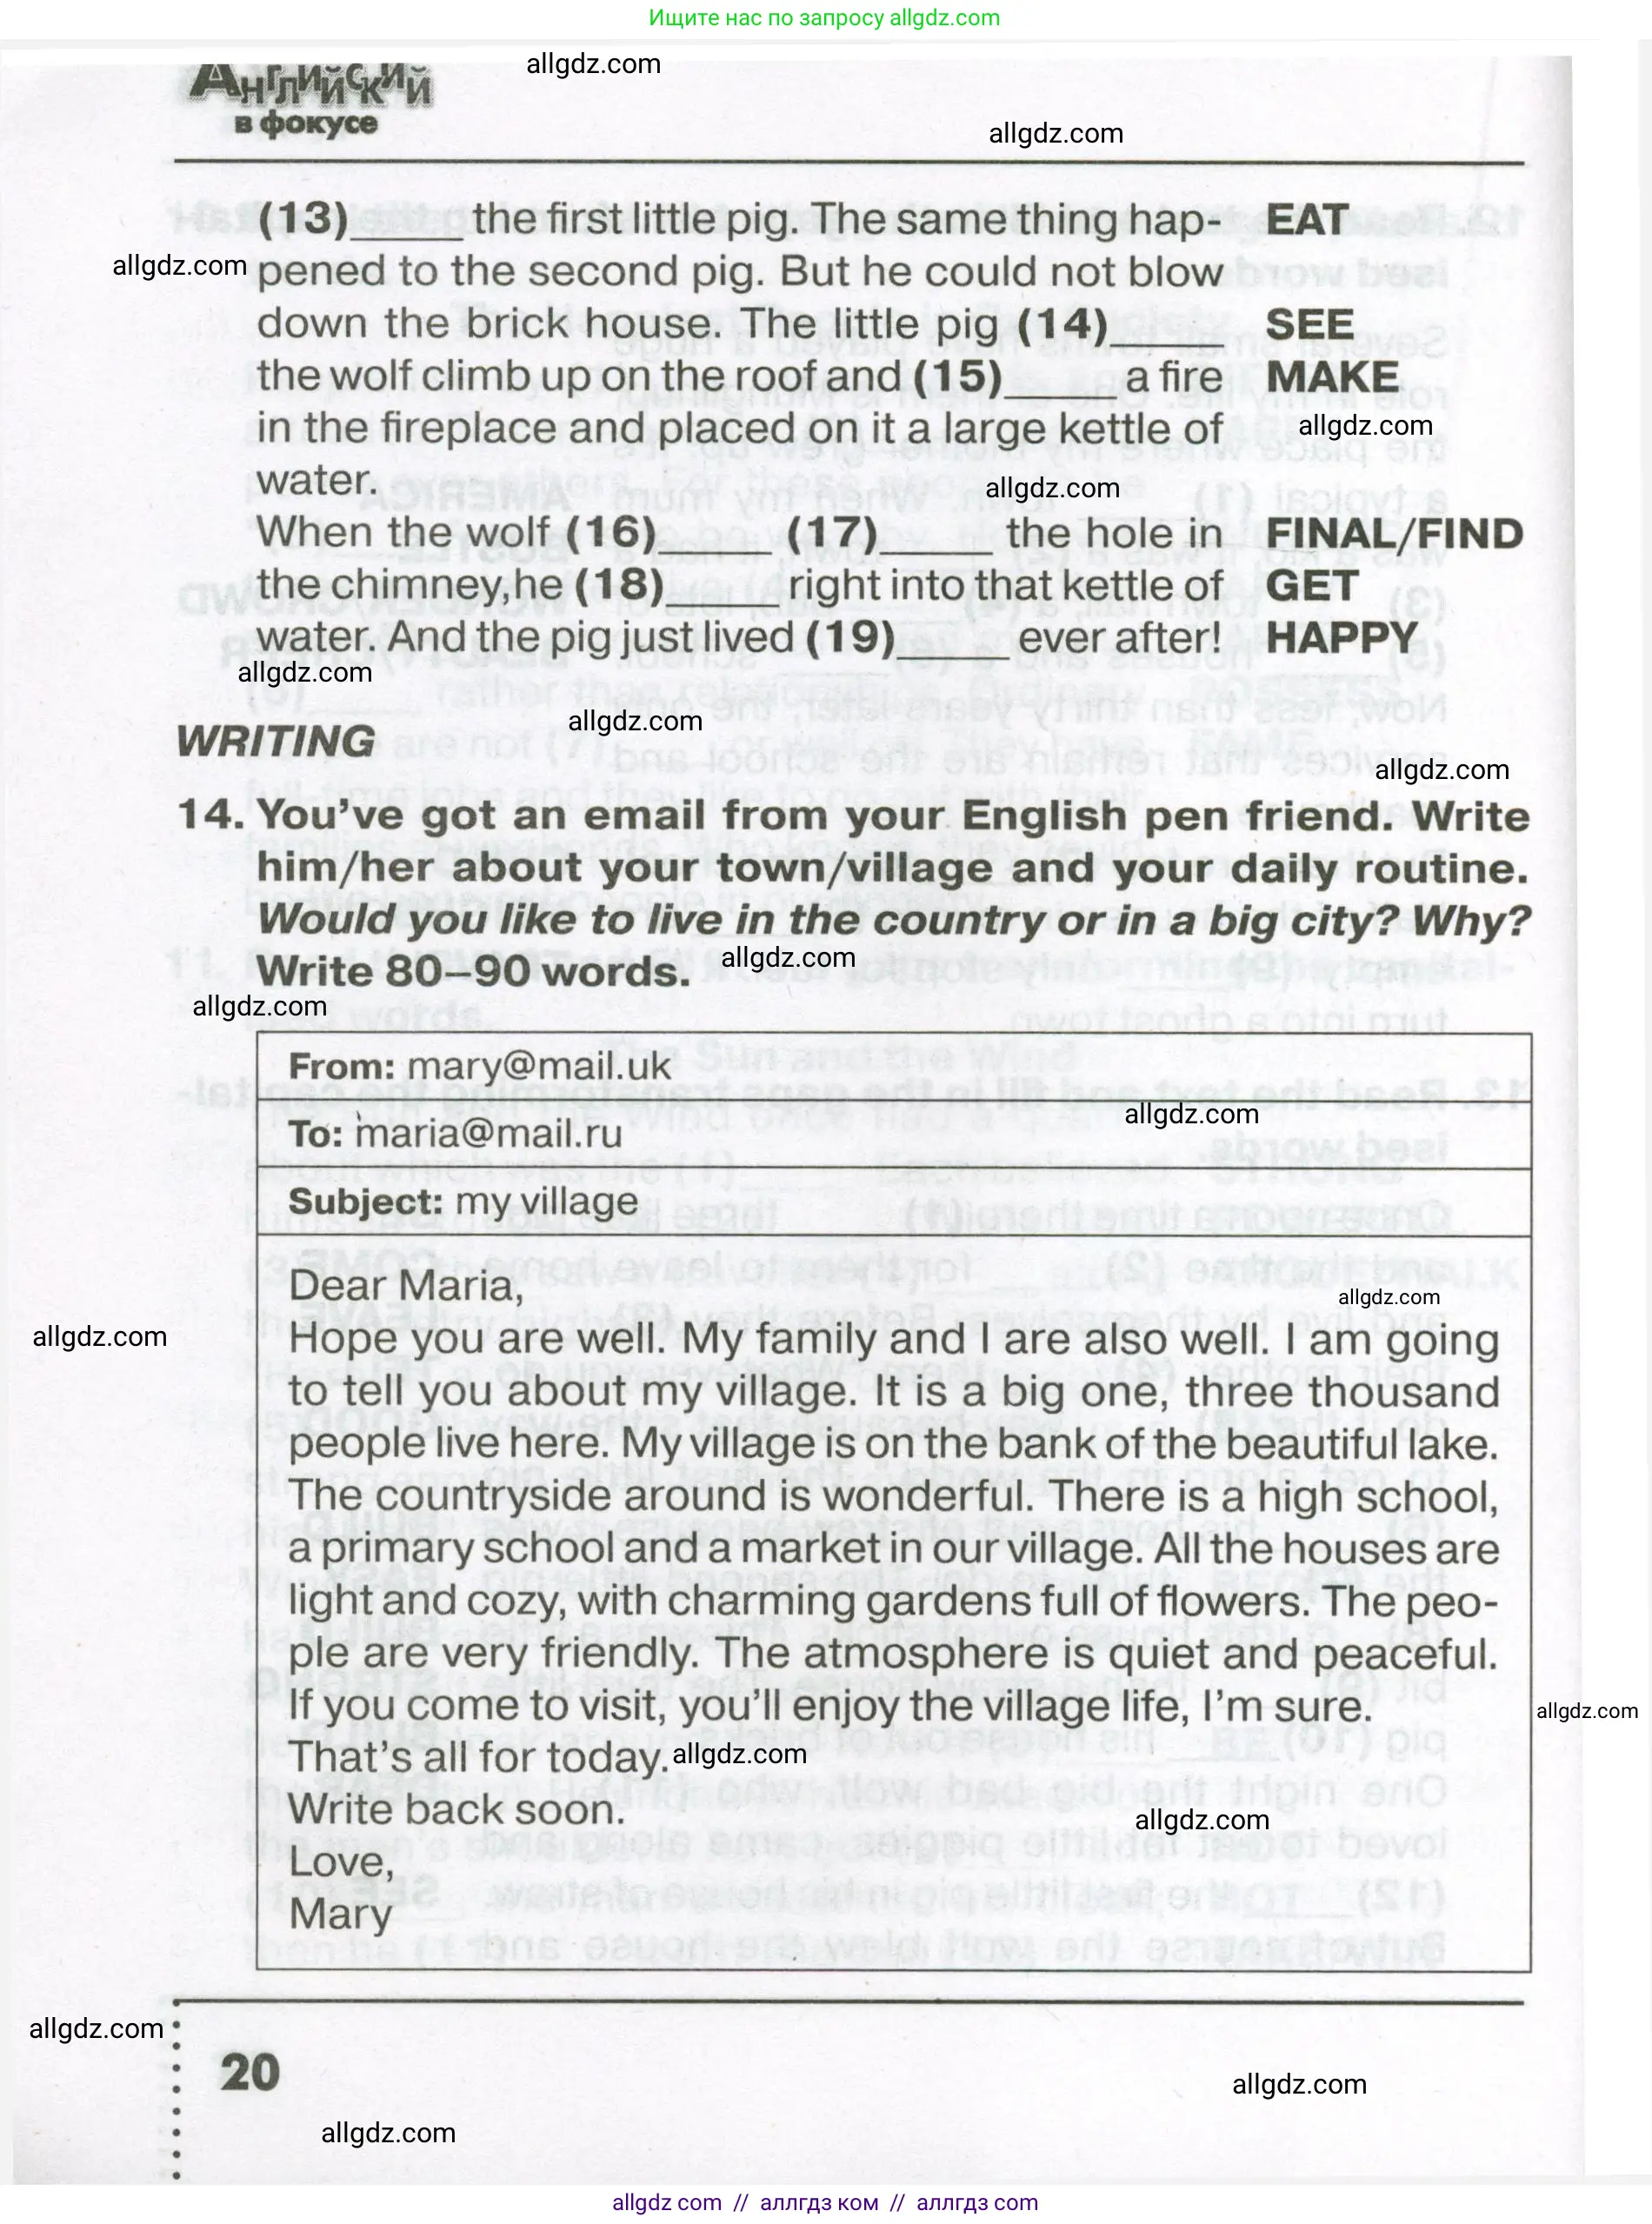 Ищите нас по запросу allgdz.com
Английский
в фокусе
allgdz.com
allgdz.com
(13)_____ the first little pig. The same thing hap- EAT
allgdz.com
pened to the second pig. But he could not blow
down the brick house. The little pig (14)_____ SEE
the wolf climb up on the roof and (15)_____ a fire MAKE
in the fireplace and placed on it a large kettle of
allgdz.com
water.
allgdz.com
When the wolf (16)_____ (17)_____ the hole in FINAL/FIND
the chimney,he (18)_____ right into that kettle of GET
water. And the pig just lived (19)_____ ever after! HAPPY
allgdz.com
allgdz.com
WRITING
allgdz.com
14. You've got an email from your English pen friend. Write
him/her about your town/village and your daily routine.
Would you like to live in the country or in a big city? Why?
Write 80–90 words.
allgdz.com
allgdz.com
From: mary@mail.uk
To: maria@mail.ru
allgdz.com
Subject: my village
Dear Maria,
allgdz.com
Hope you are well. My family and I are also well. I am going
allgdz.com
to tell you about my village. It is a big one, three thousand
people live here. My village is on the bank of the beautiful lake.
The countryside around is wonderful. There is a high school,
a primary school and a market in our village. All the houses are
light and cozy, with charming gardens full of flowers. The peo-
ple are very friendly. The atmosphere is quiet and peaceful.
If you come to visit, you'll enjoy the village life, I'm sure.
allgdz.com
That's all for today.
allgdz.com
Write back soon.
allgdz.com
Love,
Mary
allgdz.com
20
allgdz.com
allgdz.com
allgdz com // аллгдз ком // аллгдз com